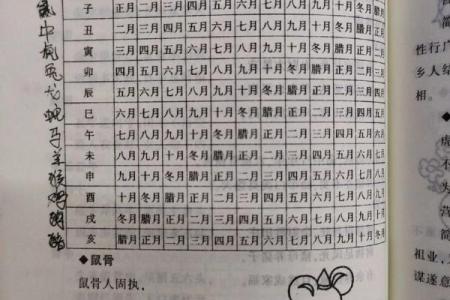 鼠牛虎兔龙蛇马羊猴鸡狗猪
子 正月 二月 三月 四月 五月 六月 七月 八月 九月 十月 冬月 腊月
丑 二月 三月 四月 五月 六月 七月 八月 九月 十月 冬月 腊月 正月
寅 三月 四月 五月 六月 七月 八月 九月 十月 冬月 腊月 正月 二月
卯 四月 五月 六月 七月 八月 九月 十月 冬月 腊月 正月 二月 三月
辰 五月 六月 七月 八月 九月 十月 冬月 腊月 正月 二月 三月 四月
巳 六月 七月 八月 九月 十月 冬月 腊月 正月 二月 三月 四月 五月
午 七月 八月 九月 十月 冬月 腊月 正月 二月 三月 四月 五月 六月
未 八月 九月 十月 冬月 腊月 正月 二月 三月 四月 五月 六月 七月
申 九月 十月 冬月 腊月 正月 二月 三月 四月 五月 六月 七月 八月
酉 十月 冬月 腊月 正月 二月 三月 四月 五月 六月 七月 八月 九月
戌 冬月 腊月 正月 二月 三月 四月 五月 六月 七月 八月 九月 十月
亥 腊月 正月 二月 三月 四月 五月 六月 七月 八月 九月 十月 冬月
◆鼠骨
鼠骨人固执，
简
性行广
乡人结
相。
◆
虎
不
为
营
简
祖业，
谋遂意